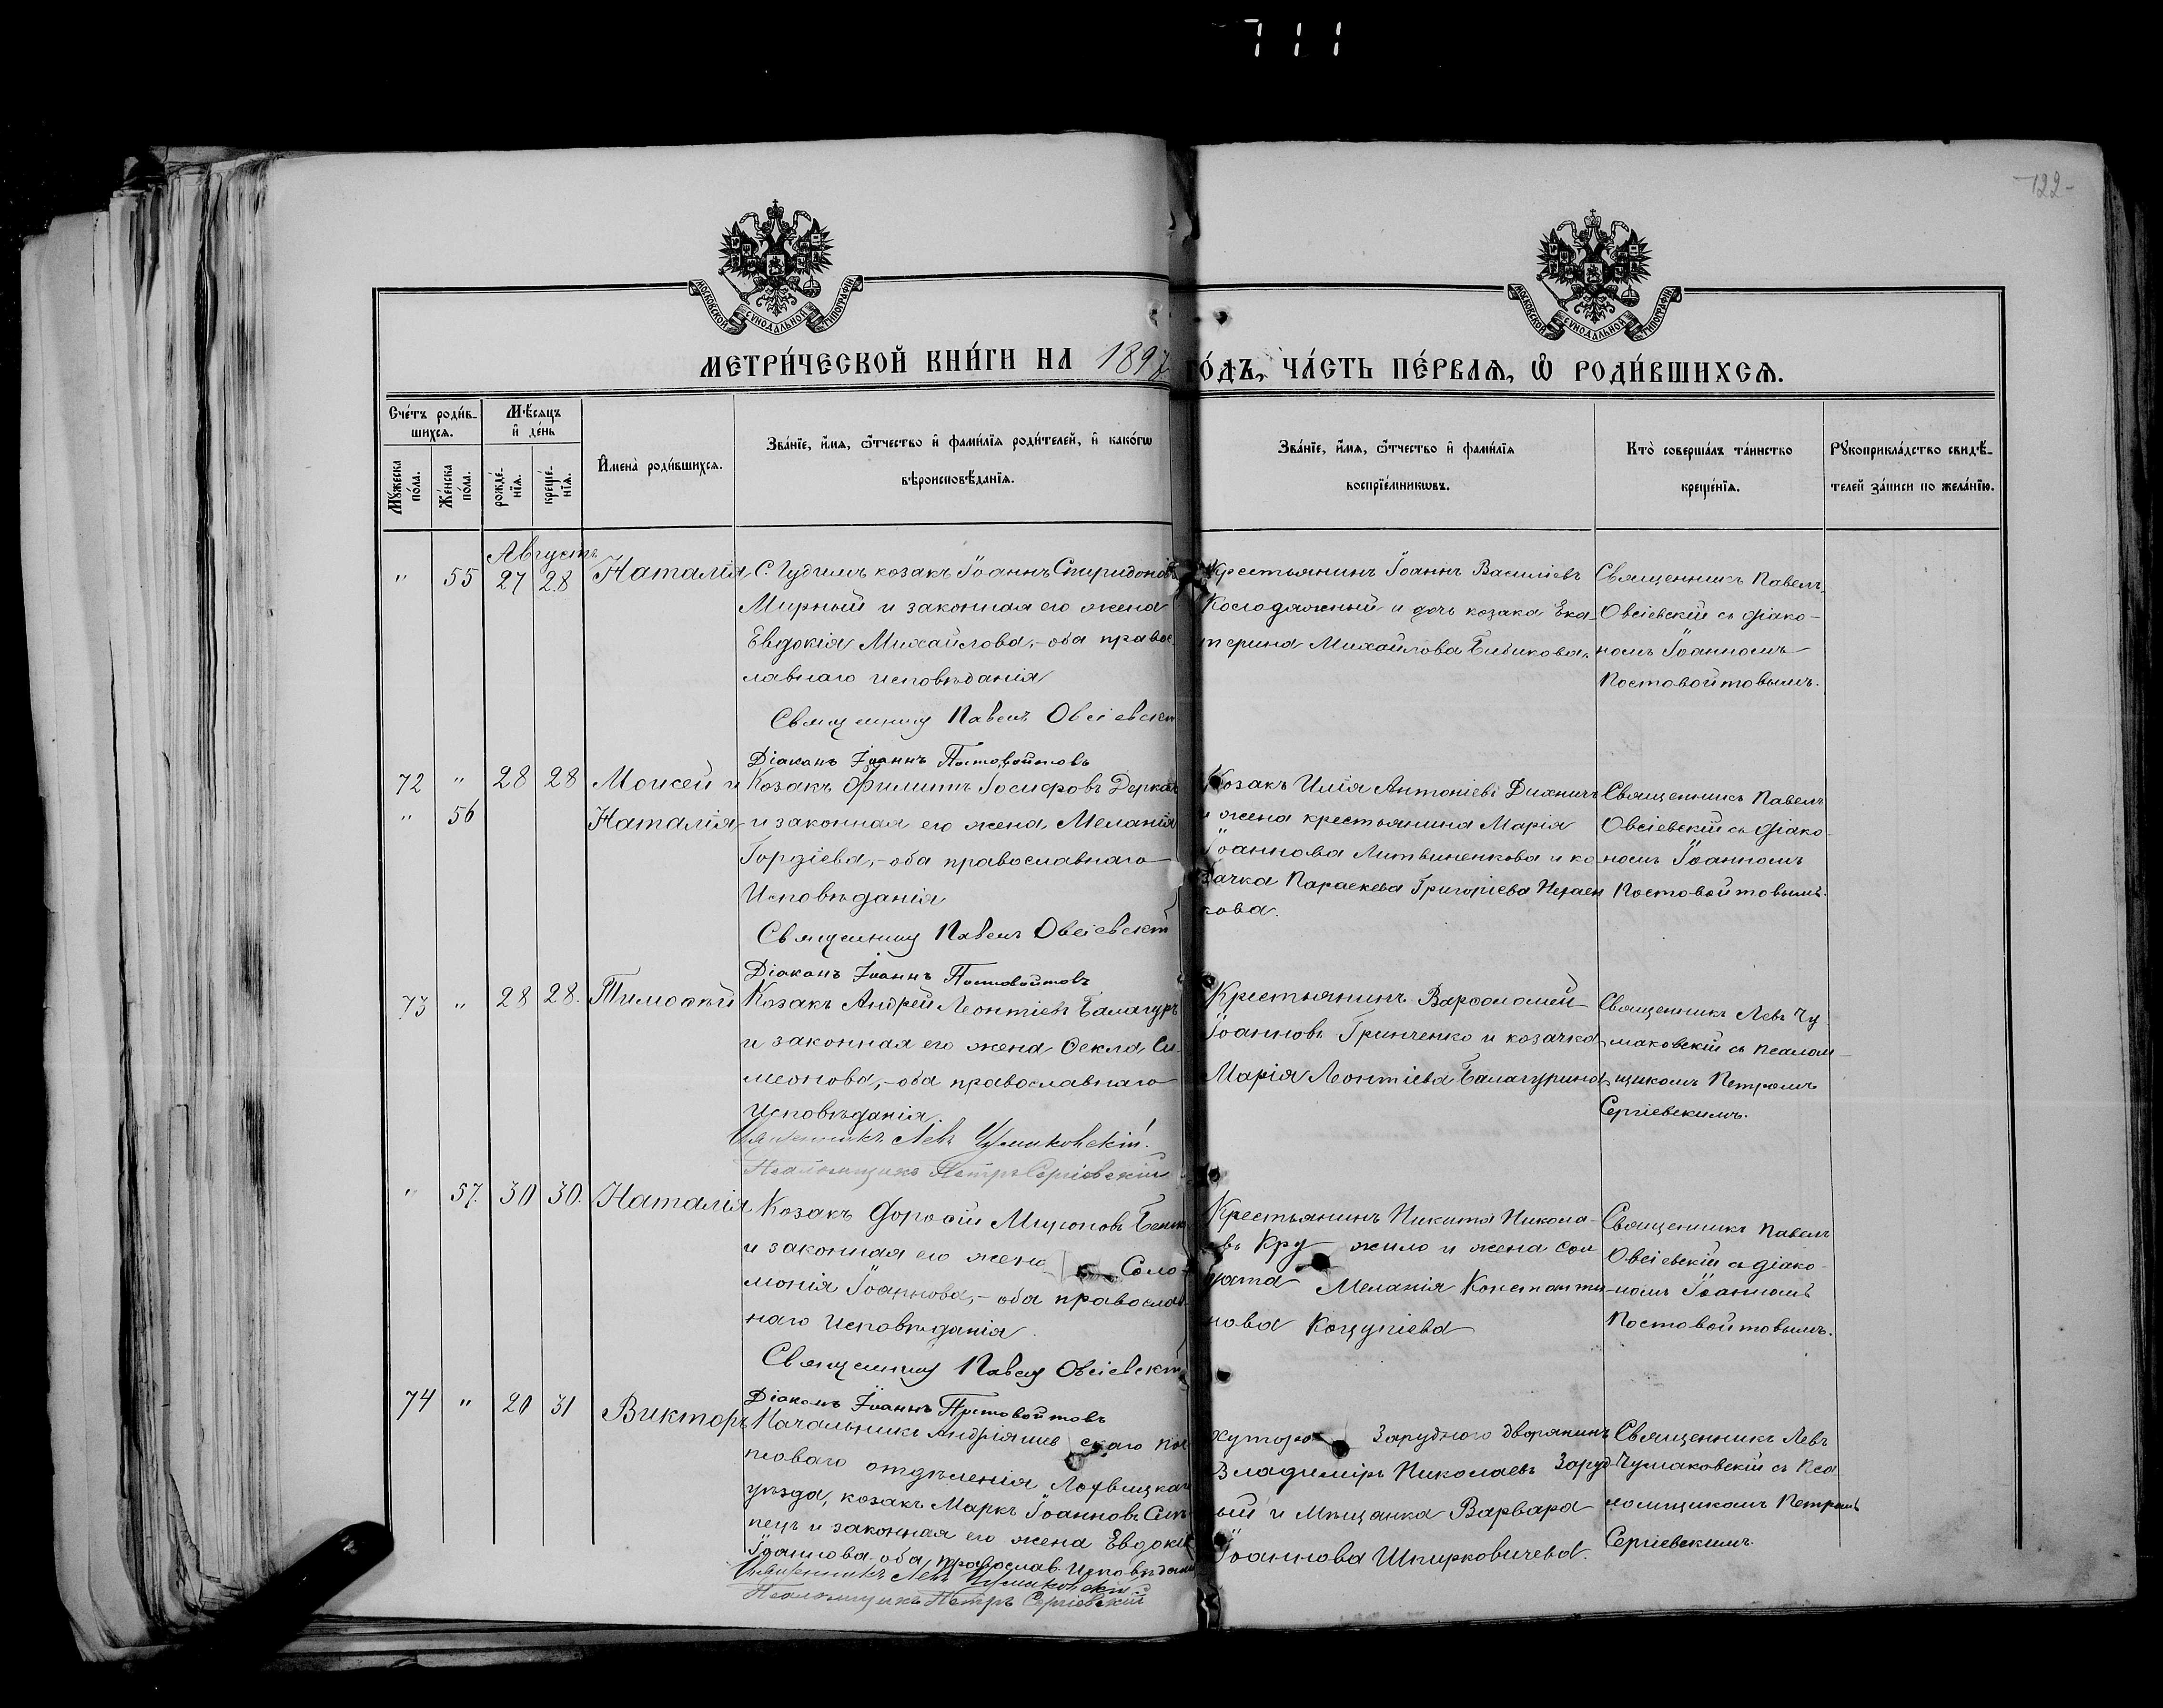 711
-122-
МОСКОВСКОЙ СУНОДАЛЬНОЙ ТИПОГРАФІИ
МОСКОВСКОЙ СУНОДАЛЬНОЙ ТИПОГРАФІИ
МЕТРИ́ЧЕСКОЙ КНИ́ГИ НА 1897 ГО́ДЪ, ЧА́СТЬ ПЕ́РВАѦ, Ѽ РОДИ́ВШИХСѦ.
Сче́тъ роди́в-
шихсѧ.
Мѣ́сѧцъ
и҆ де́нь
Мꙋ́жеска
по́ла.
Же́нска
по́ла.
рожде́-
нїѧ.
креще́-
нїѧ.
И҆мена̀ роди́вшихсѧ.
Зва́нїе, и҆́мѧ, ѻ҆́тчество и҆ фами́лїѧ роди́телей, и҆ како́гѡ
вѣроисповѣ́данїѧ.
Зва́нїе, и҆́мѧ, ѻ҆́тчество и҆ фами́лїѧ
воспрїе́мникѡвъ.
Кто̀ соверша́лъ та́инство
креще́нїѧ.
Рꙋкоприкла́дство свидѣ́-
телей за́писи по жела́нїю.
Августъ
" 55 27 28 Наталія
С. Гудимъ козакъ Іоаннъ Спиридоновъ
Мирный и законная его жена
Евдокія Михайлова,- оба правос-
лавнаго исповѣданія
Священникъ Павелъ Овсіевскій
Діаконъ Іоаннъ Постовойтовъ
Крестьянинъ Іоаннъ Василіевъ
Колодяжный и дочь козака Ека-
терина Михайлова Бибикова.
Священникъ Павелъ
Овсіевскій съ діако-
номъ Іоанномъ
Постовойтовымъ.
72 " 28 28 Моисей и
" 56 Наталія
Козакъ Филиппъ Іосифовъ Деркачъ
и законная его жена Меланія
Гордіева,- оба православнаго
Исповѣданія
Священникъ Павелъ Овсіевскій
Діаконъ Іоаннъ Постовойтовъ
Козакъ Илія Антоніевъ Дихничъ
и жена крестьянина Марія
Іоаннова Литвиненкова и ко-
зачка Параскева Григоріева
кова.
Священникъ Павелъ
Овсіевскій съ діако-
номъ Іоанномъ
Постовойтовымъ.
73 " 28 28. Тимоѳей
Козакъ Андрей Леонтіевъ Балагуръ
и законная его жена Ѳекла Си-
меонова,- оба православнаго
исповѣданія.
Священникъ Левъ Чумаковскій.
Псаломщикъ Петръ Сергіевскій
Крестьянинъ Варѳоломей
Іоанновъ Гринченко и козачка
Марія Леонтіева Балагурина
Священникъ Левъ Чу-
маковскій съ псалом-
щикомъ Петромъ
Сергіевскимъ.
" 57. 30 30. Наталія
Козакъ Дороѳей Мироновъ
и законная его жена Соло-
монія Іоаннова,- оба православ-
наго исповѣданія.
Священникъ Павелъ Овсіевскій
Діаконъ Іоаннъ Постовойтовъ
Крестьянинъ Никита Никола-
евъ Кру жило и жена сол-
дата Меланія Константи-
нова Коцупіева
Священникъ Павелъ
Овсіевскій съ діако-
номъ Іоанномъ
Постовойтовымъ.
74 " 20 31 Викторъ
Начальникъ Андріяшев скаго поч-
товаго отдѣленія Лохвицкаго
уѣзда, козакъ Маркъ Іоанновъ
и законная его жена Евдокія
Іоаннова оба православ. Исповѣданія
Священникъ Левъ Чумаковскій
Псаломщикъ Петръ Сергіевскій
хутора Заруднаго дворянинъ
Владиміръ Николаевъ Заруд-
ный и Мѣщанка Варвара
Іоаннова Шпирковичева.
Священникъ Левъ
Чумаковскій съ Пса-
ломщикомъ Петромъ
Сергіевскимъ.